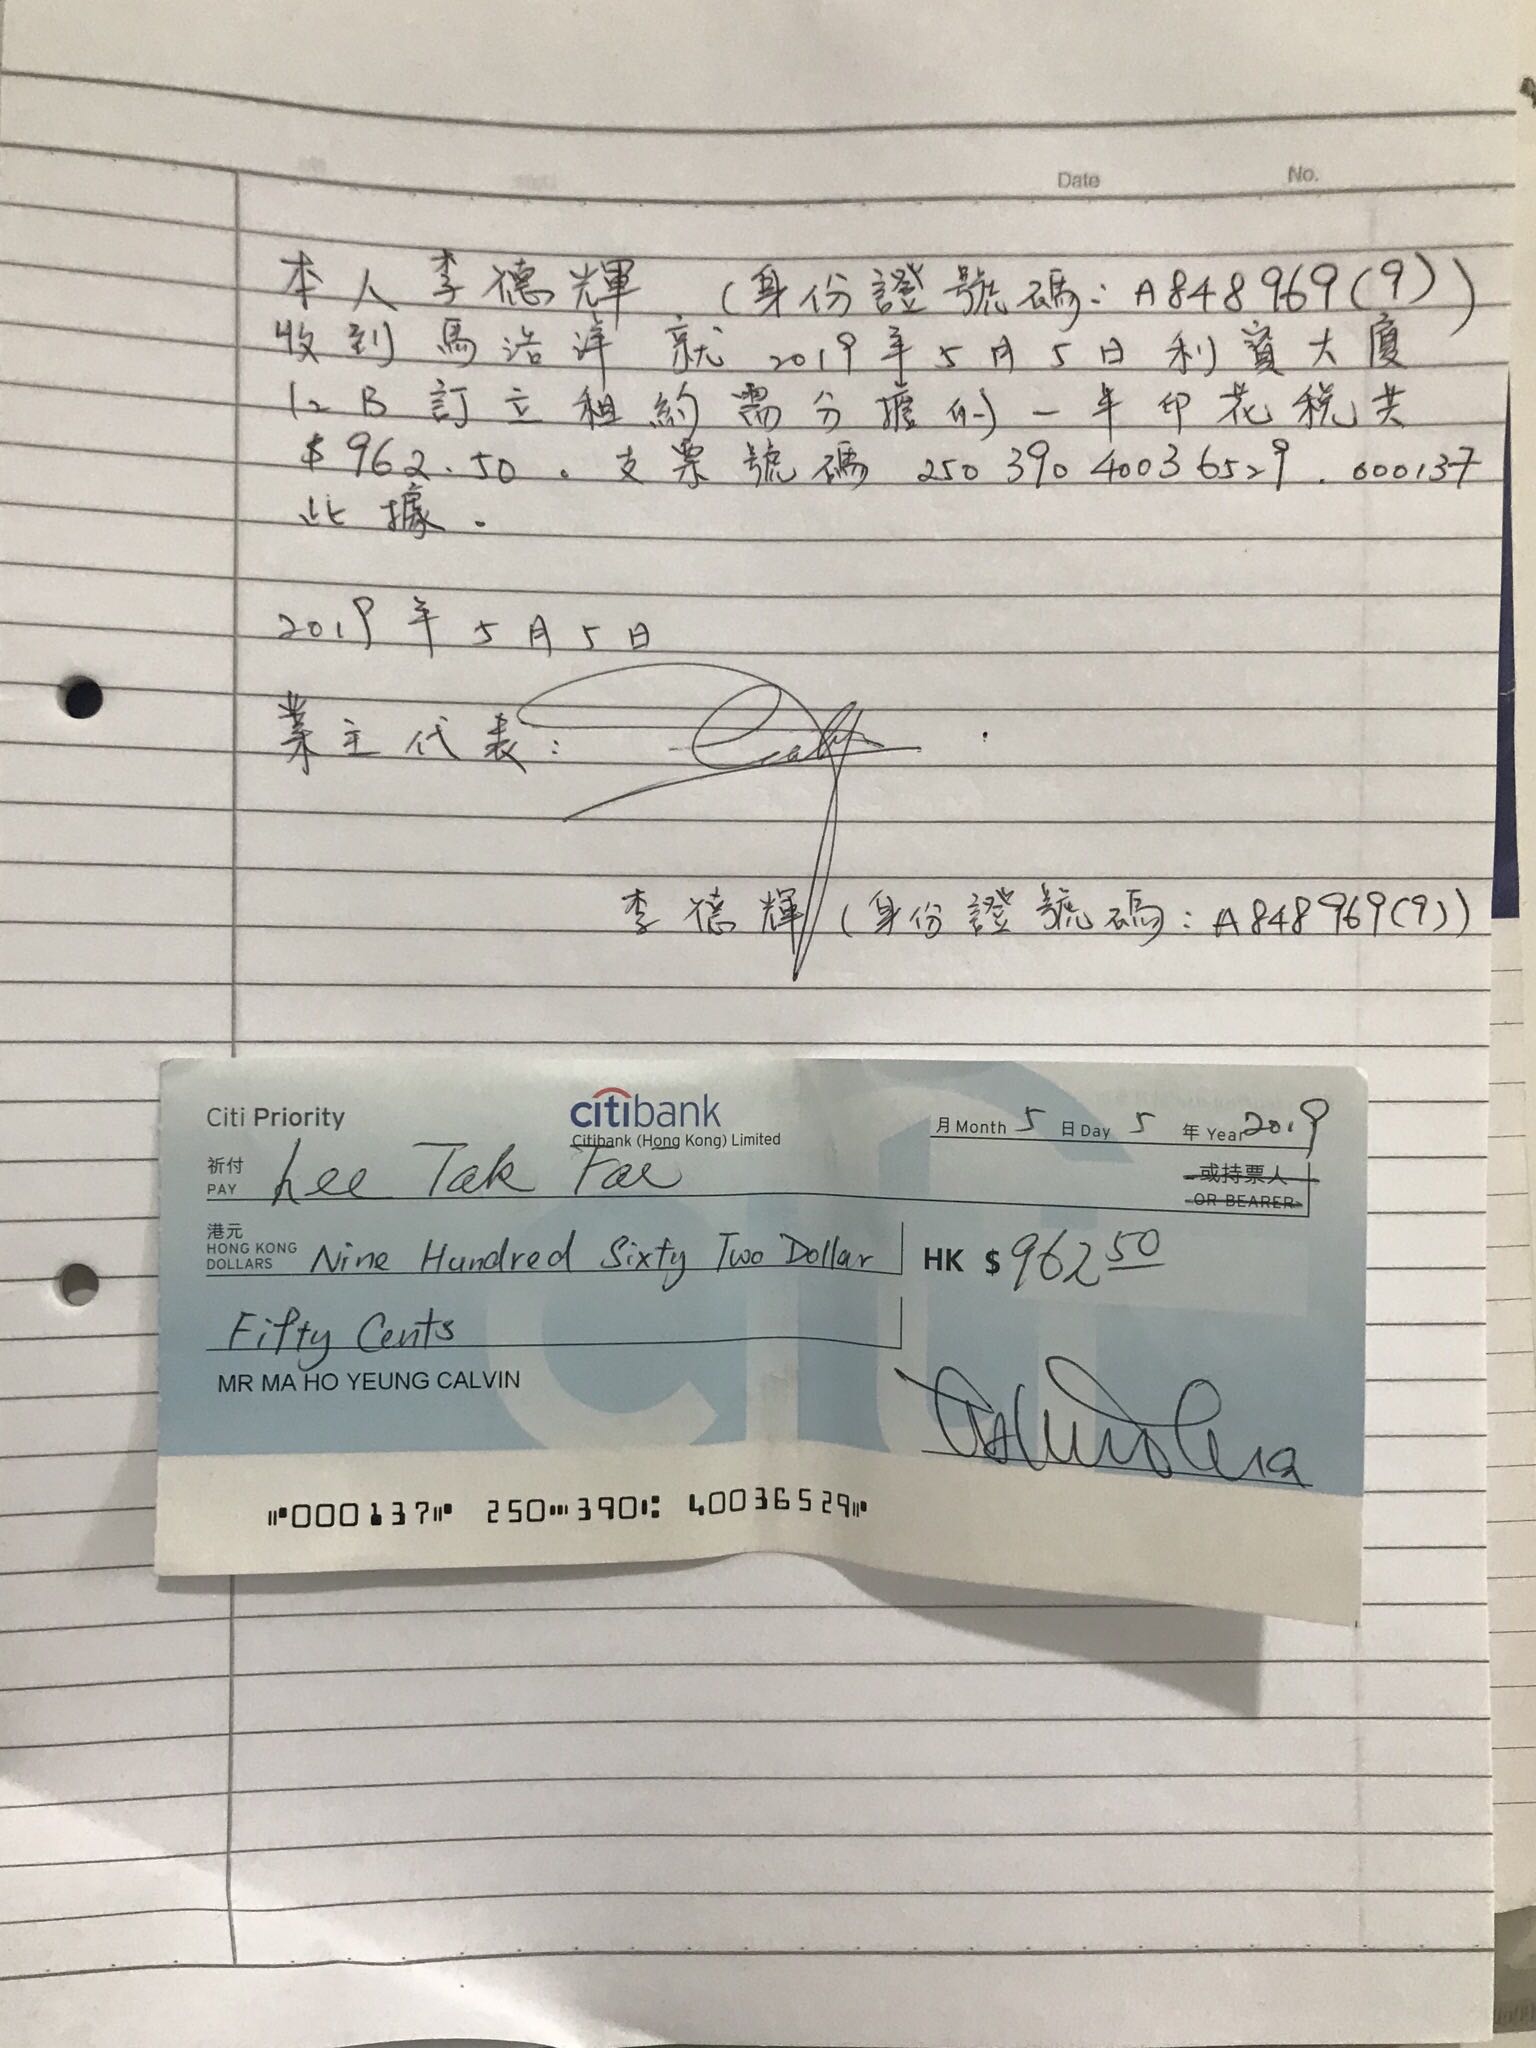 Date No.
本人李德輝 (身份證號碼: A848969(9))
收到馬浩洋就2019年5月5日利寶大廈
12B訂立租約需分擔的一年印花稅共
$962.50. 支票號碼 250 390 40036529. 000137
此據.
2019年5月5日
業主代表:
李德輝 (身份證號碼: A848969(9))
Citi Priority
citibank
Citibank (Hong Kong) Limited
月 Month 5 日 Day 5 年 Year 2019
祈付
PAY
Lee Tak Fai
或持票人
OR BEARER
港元
HONG KONG
DOLLARS
Nine Hundred Sixty Two Dollar
HK $ 962 50
Fifty Cents
MR MA HO YEUNG CALVIN
⑈000137⑈ 250⑉390⑆ 40036529⑈